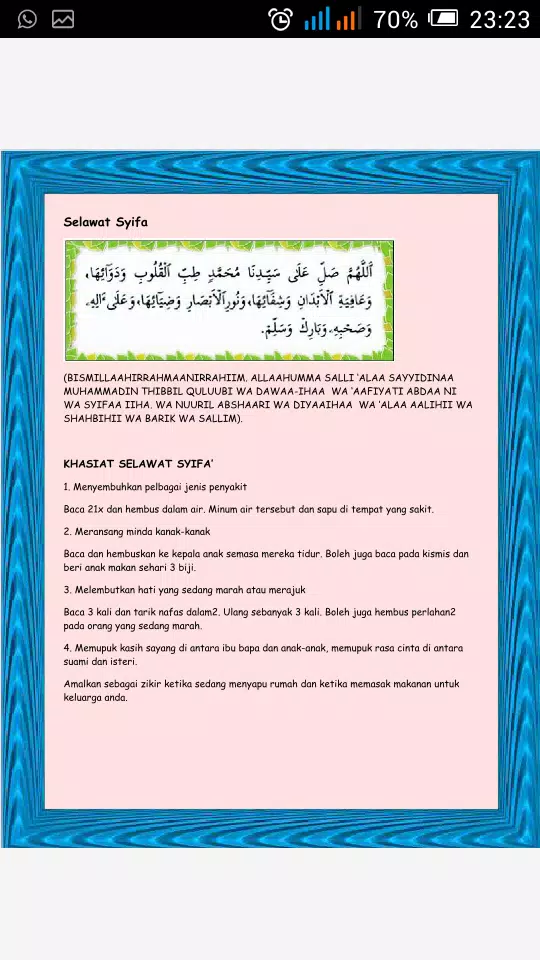 70% 23:23
Selawat Syifa
اَللّٰهُمَّ صَلِّ عَلٰى سَيِّدِنَا مُحَمَّدٍ طِبِّ الْقُلُوبِ وَدَوَآئِهَا،
وَعَافِيَةِ الْاَبْدَانِ وَشِفَآئِهَا،وَنُورِالْاَبْصَارِ وَضِيَآئِهَا،وَعَلٰى ءَالِهِ
وَصَحْبِهِ وَبَارِكْ وَسَلِّمْ.
(BISMILLAAHIRRAHMAANIRRAHIIM. ALLAAHUMMA SALLI 'ALAA SAYYIDINAA
MUHAMMADIN THIBBIL QULUUBI WA DAWAA-IHAA WA 'AAFIYATI ABDAA NI
WA SYIFAA IIHA. WA NUURIL ABSHAARI WA DIYAAIHAA WA 'ALAA AALIHII WA
SHAHBIHII WA BARIK WA SALLIM).
KHASIAT SELAWAT SYIFA'
1. Menyembuhkan pelbagai jenis penyakit
Baca 21x dan hembus dalam air. Minum air tersebut dan sapu di tempat yang sakit.
2. Meransang minda kanak-kanak
Baca dan hembuskan ke kepala anak semasa mereka tidur. Boleh juga baca pada kismis dan
beri anak makan sehari 3 biji.
3. Melembutkan hati yang sedang marah atau merajuk
Baca 3 kali dan tarik nafas dalam2. Ulang sebanyak 3 kali. Boleh juga hembus perlahan2
pada orang yang sedang marah.
4. Memupuk kasih sayang di antara ibu bapa dan anak-anak, memupuk rasa cinta di antara
suami dan isteri.
Amalkan sebagai zikir ketika sedang menyapu rumah dan ketika memasak makanan untuk
keluarga anda.